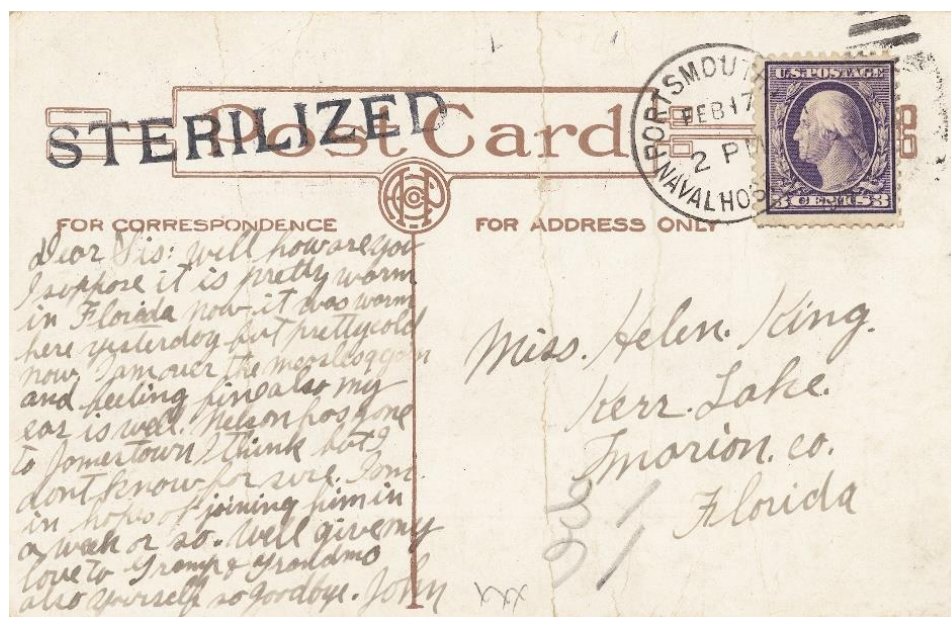 STERILIZED
Post Card
PORTSMOUTH
FEB 17
2 PM
NAVAL HOS
U.S. POSTAGE
3 CENTS 3
FOR CORRESPONDENCE
FOR ADDRESS ONLY
Dear Sis: well how are you
I suppose it is pretty warm
in Florida now. it was warm
here yesterday but pretty cold
now. I am over the measles again
and feeling fine also my
ear is well. Nelson has gone
to Jamestown I think but I
dont know for sure. I am
in hopes of joining him in
a week or so. Well give my
love to Gramp & Grandma
also yourself so Goodbye. John
Miss. Helen. King.
Kerr. Lake.
Marion. co.
Florida
xxx